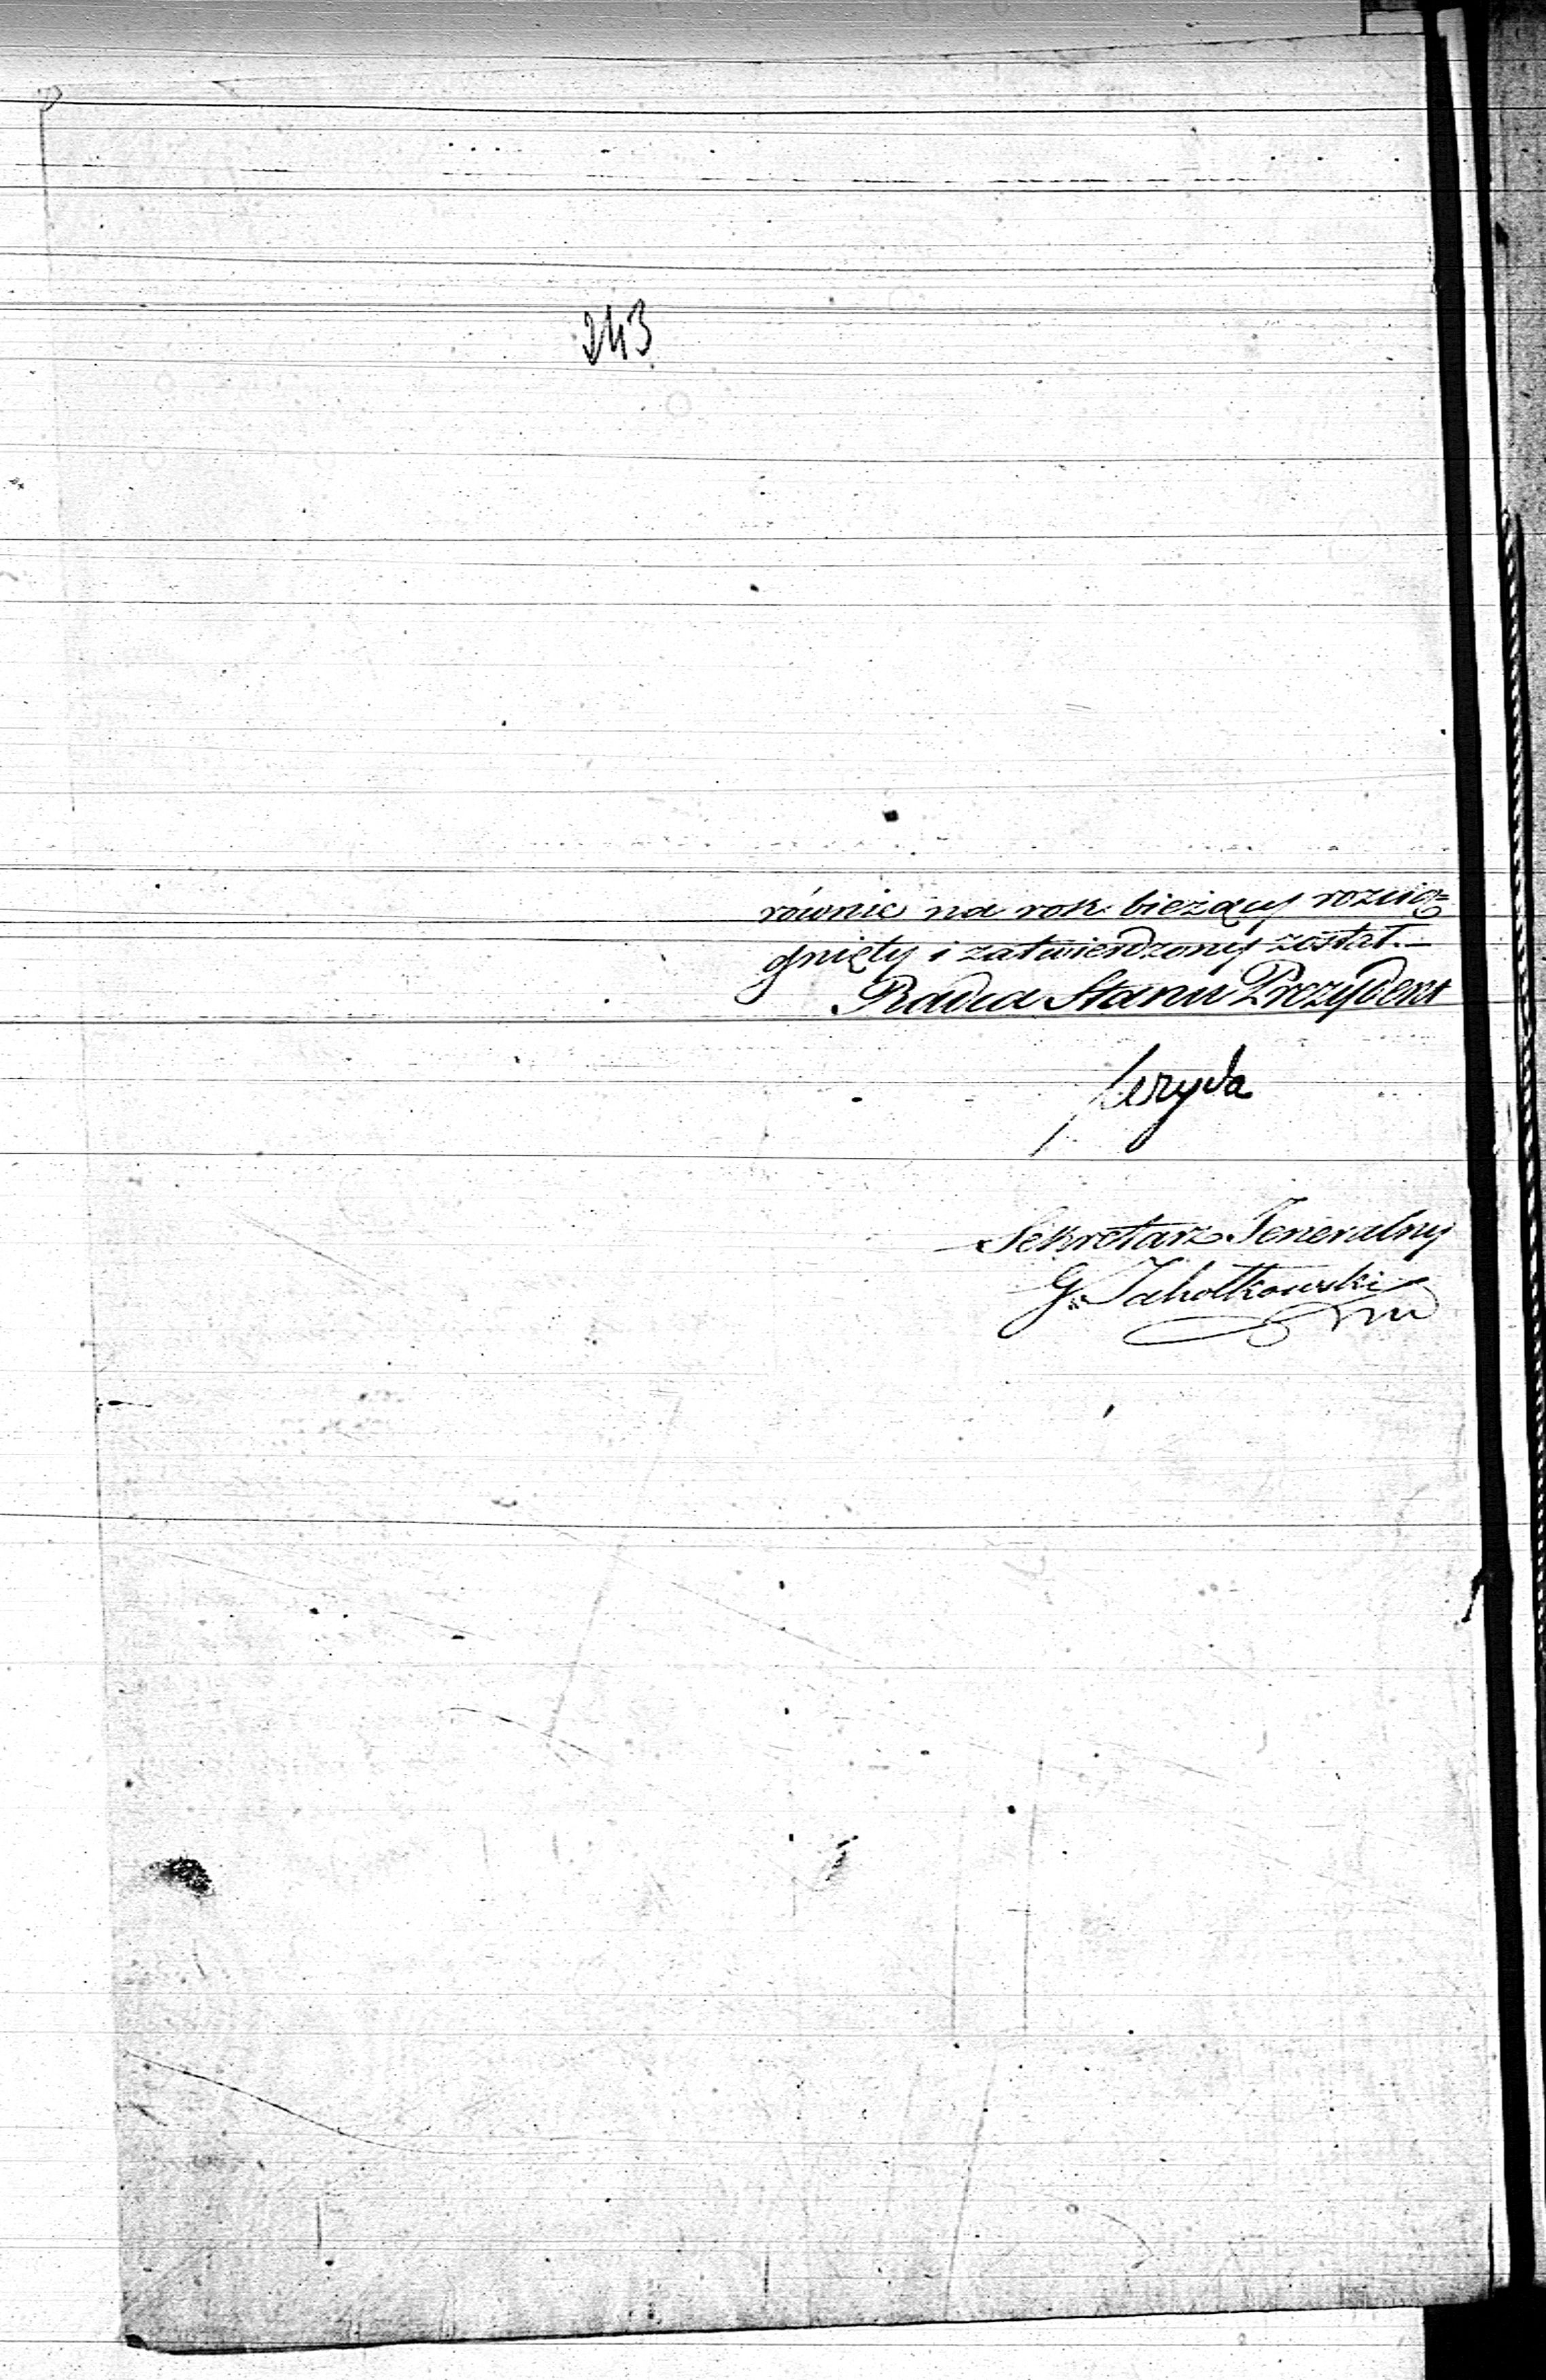 243
równie na rok bieżący rozcią=
gnięty i zatwierdzony został.—
Radca Stanu Prezydent
Sekretarz Jeneralny
G. Jahołkowski